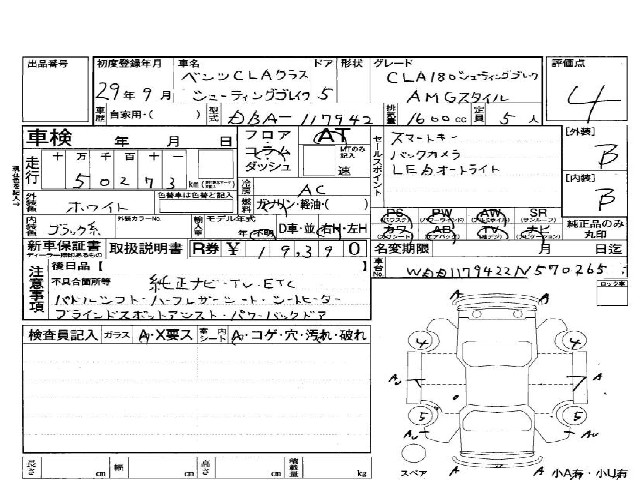 出品番号 初度登録年月 車名 ドア 形状 グレード 評価点
29年9月 ベンツCLAクラス シューティングブレイク 5 CLA180シューティングブレイク AMGスタイル 4
車歴 自家用・( ) 型式 DBA-117942 排気量 1600cc 定員 5人
車検 年 月 日 フロア・コラム・ダッシュ AT MTのみ記入 速
セールスポイント スマートキー
バックカメラ
LEDオートライト
[外装] B
[内装] B
走行 十 万 千 百 十 一
50273 km
冷房 AC
外装色 ホワイト 色替車は色替と記入 燃料 ガソリン・軽油・( )
内装色 ブラック系 外装カラーNo. 輸入車 モデル年式 年(不明) D車・並 右H・左H
PS PW AW SR
カワ AB TV ナビ 純正品のみ丸印
新車保証書 取扱説明書 R券 ¥ 19,390 名変期限 月 日迄
ディーラー捺印あるもの
注意事項 後日品【 】
不具合箇所等 純正ナビ・TV・ETC
パドルシフト・ハーフレザーシート・シートヒーター
ブラインドスポットアシスト・パワーバックドア
車台No. WDD1179422N570265
ロック車
検査員記入 ガラス A・X要ス 室内シート A・コゲ・穴・汚れ・破れ
A
4 4
A A
5 5
A
スペア 小A有・小U有
長さ cm 幅 cm 高さ cm 積載量 kg